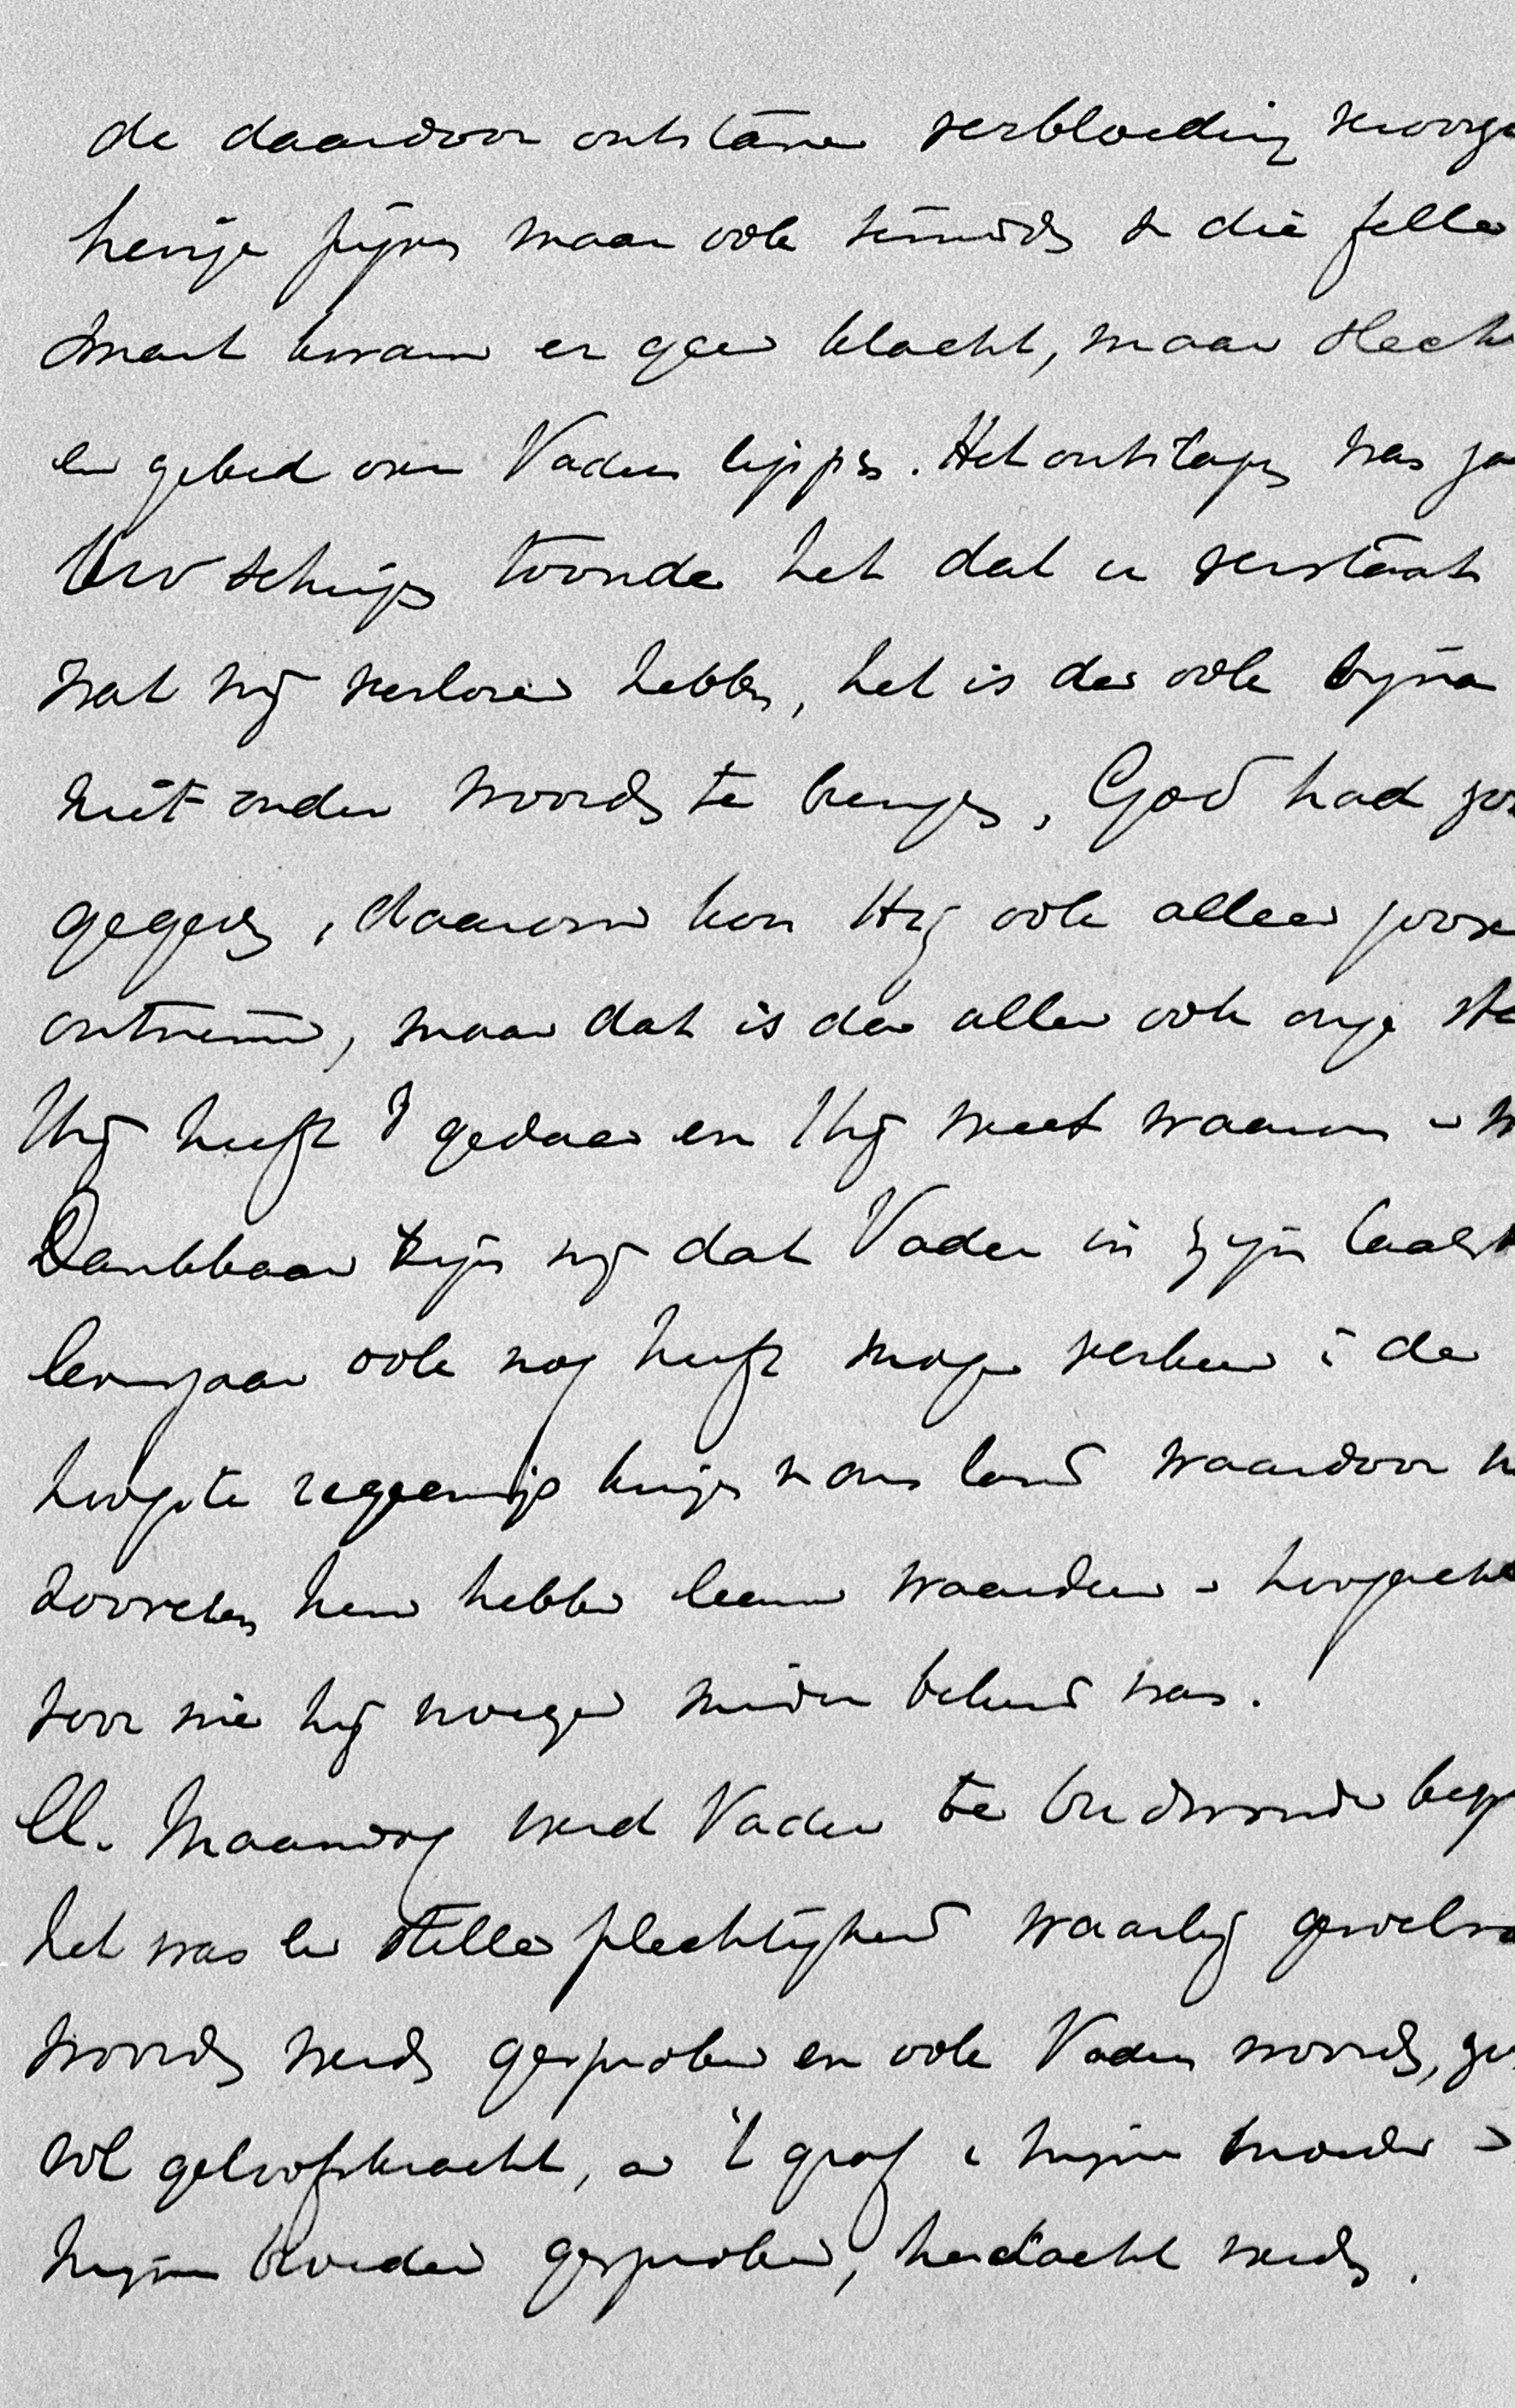 de daardoor ontstane verbloeding veroorza
hevige pijnen maar ook temidden dr die felle
smart kwam er geen klacht, maar slecht
een gebed over Vaders lippen. Het ontslapen was za
Uw schrijven toonde het dat u verstaat
wat wij verloren hebben, het is dan ook bijna
niet onder woorden te brengen, God had zoo
gegeven, daarom kon Hij ook alleen zoove
ontnemen, maar dat is dan alleen ook onze ste
Hij heeft 't gedaan en Hij weet waarom - w
Dankbaar zijn wij dat Vader in zijn laatst
levensjaar ook nog heeft mogen verkeeren in de
hoogste regeerings kringen v ons land waardoor w
doovelen hem hebben leeren waardeeren - hoogacht
voor wie hij vroeger minder bekend was.
ll. Maandag werd Vader te begr
het was een stille plechtigheid waarlijk gevoelvo
woorden werden gesproken en ook Vaders woorden, zo
vol geloofskracht, aan 't graf v mijne moeder -
mijne broeder gesproken, herdacht werden.